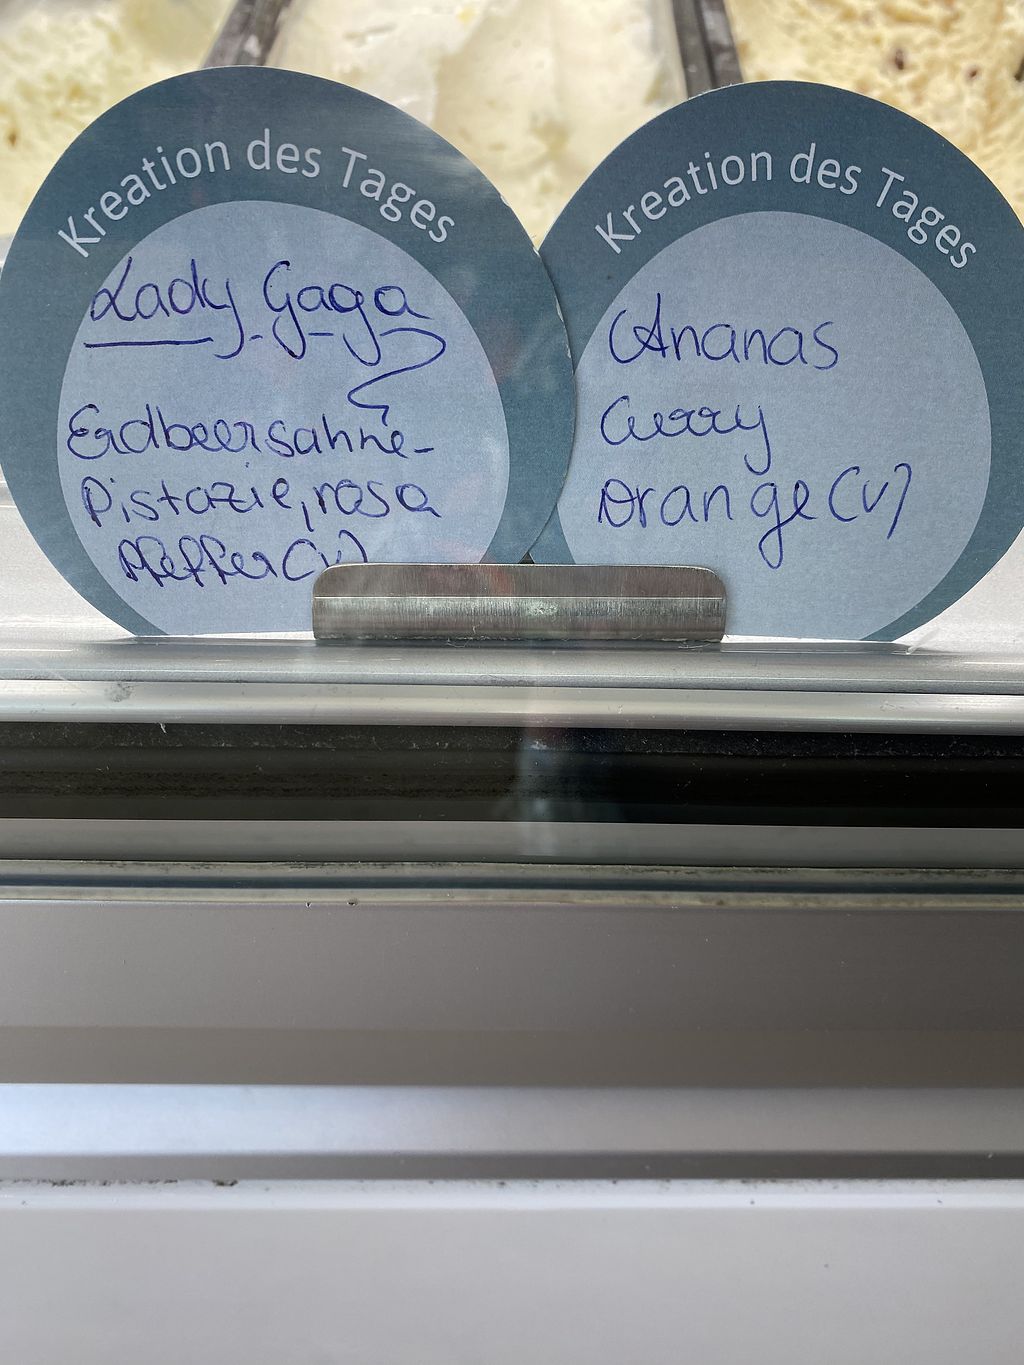 Kreation des Tages
Lady Gaga
Erdbeersahne-
Pistazie, rosa
Pfeffer (v)
Kreation des Tages
Ananas
Curry
Orange (v)